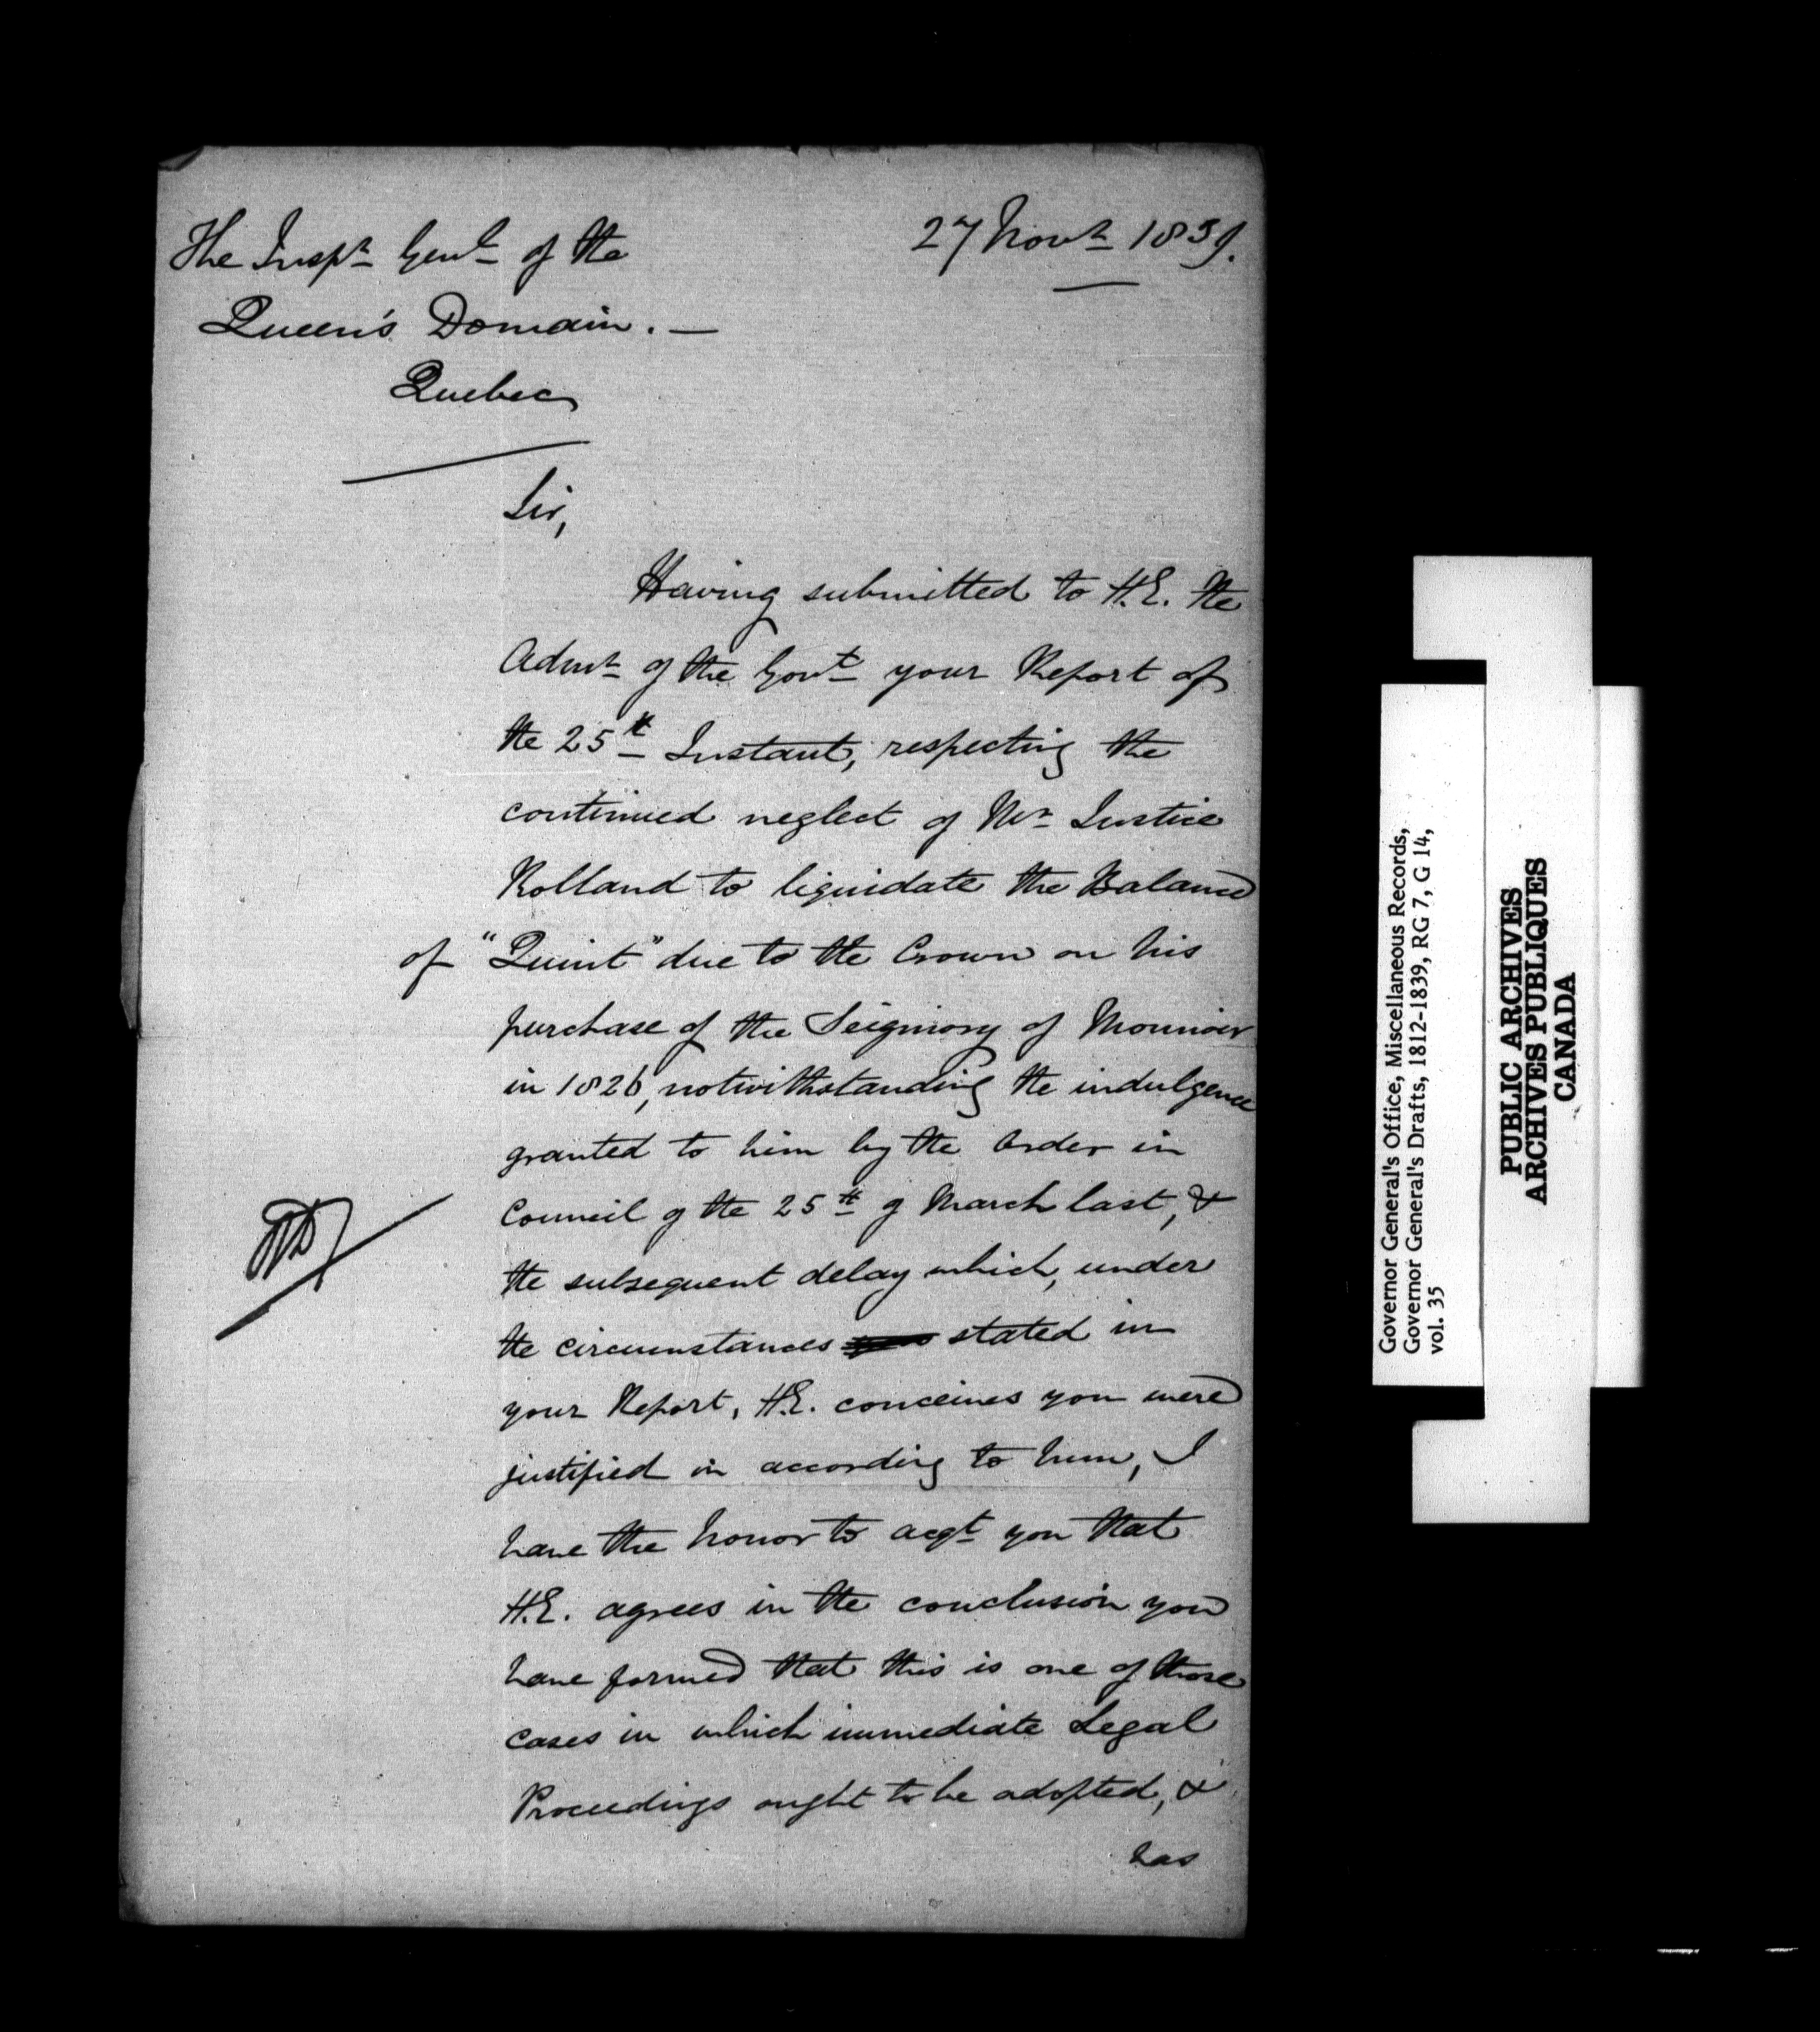 The Inspr Genl of the
Queen's Domain. —
Quebec
27 Novr 1839.
Sir,
Having submitted to H.E. the
Admr of the Govt your Report of
the 25th Instant, respecting the
continued neglect of Mr Justice
Rolland to liquidate the Balance
of "Quint" due to the Crown on his
purchase of the Seigniory of Monnoir
in 1826, notwithstanding the indulgence
granted to him by the Order in
Council of the 25th of March last, &
the subsequent delay which, under
the circumstances stated in
your Report, H.E. conceives you were
justified in according to him, I
have the honor to acqt you that
H.E. agrees in the conclusion you
have formed that this is one of those
cases in which immediate Legal
Proceedings ought to be adopted, &
has
Governor General's Office, Miscellaneous Records,
Governor General's Drafts, 1812-1839, RG 7, G 14,
vol. 35
PUBLIC ARCHIVES
ARCHIVES PUBLIQUES
CANADA